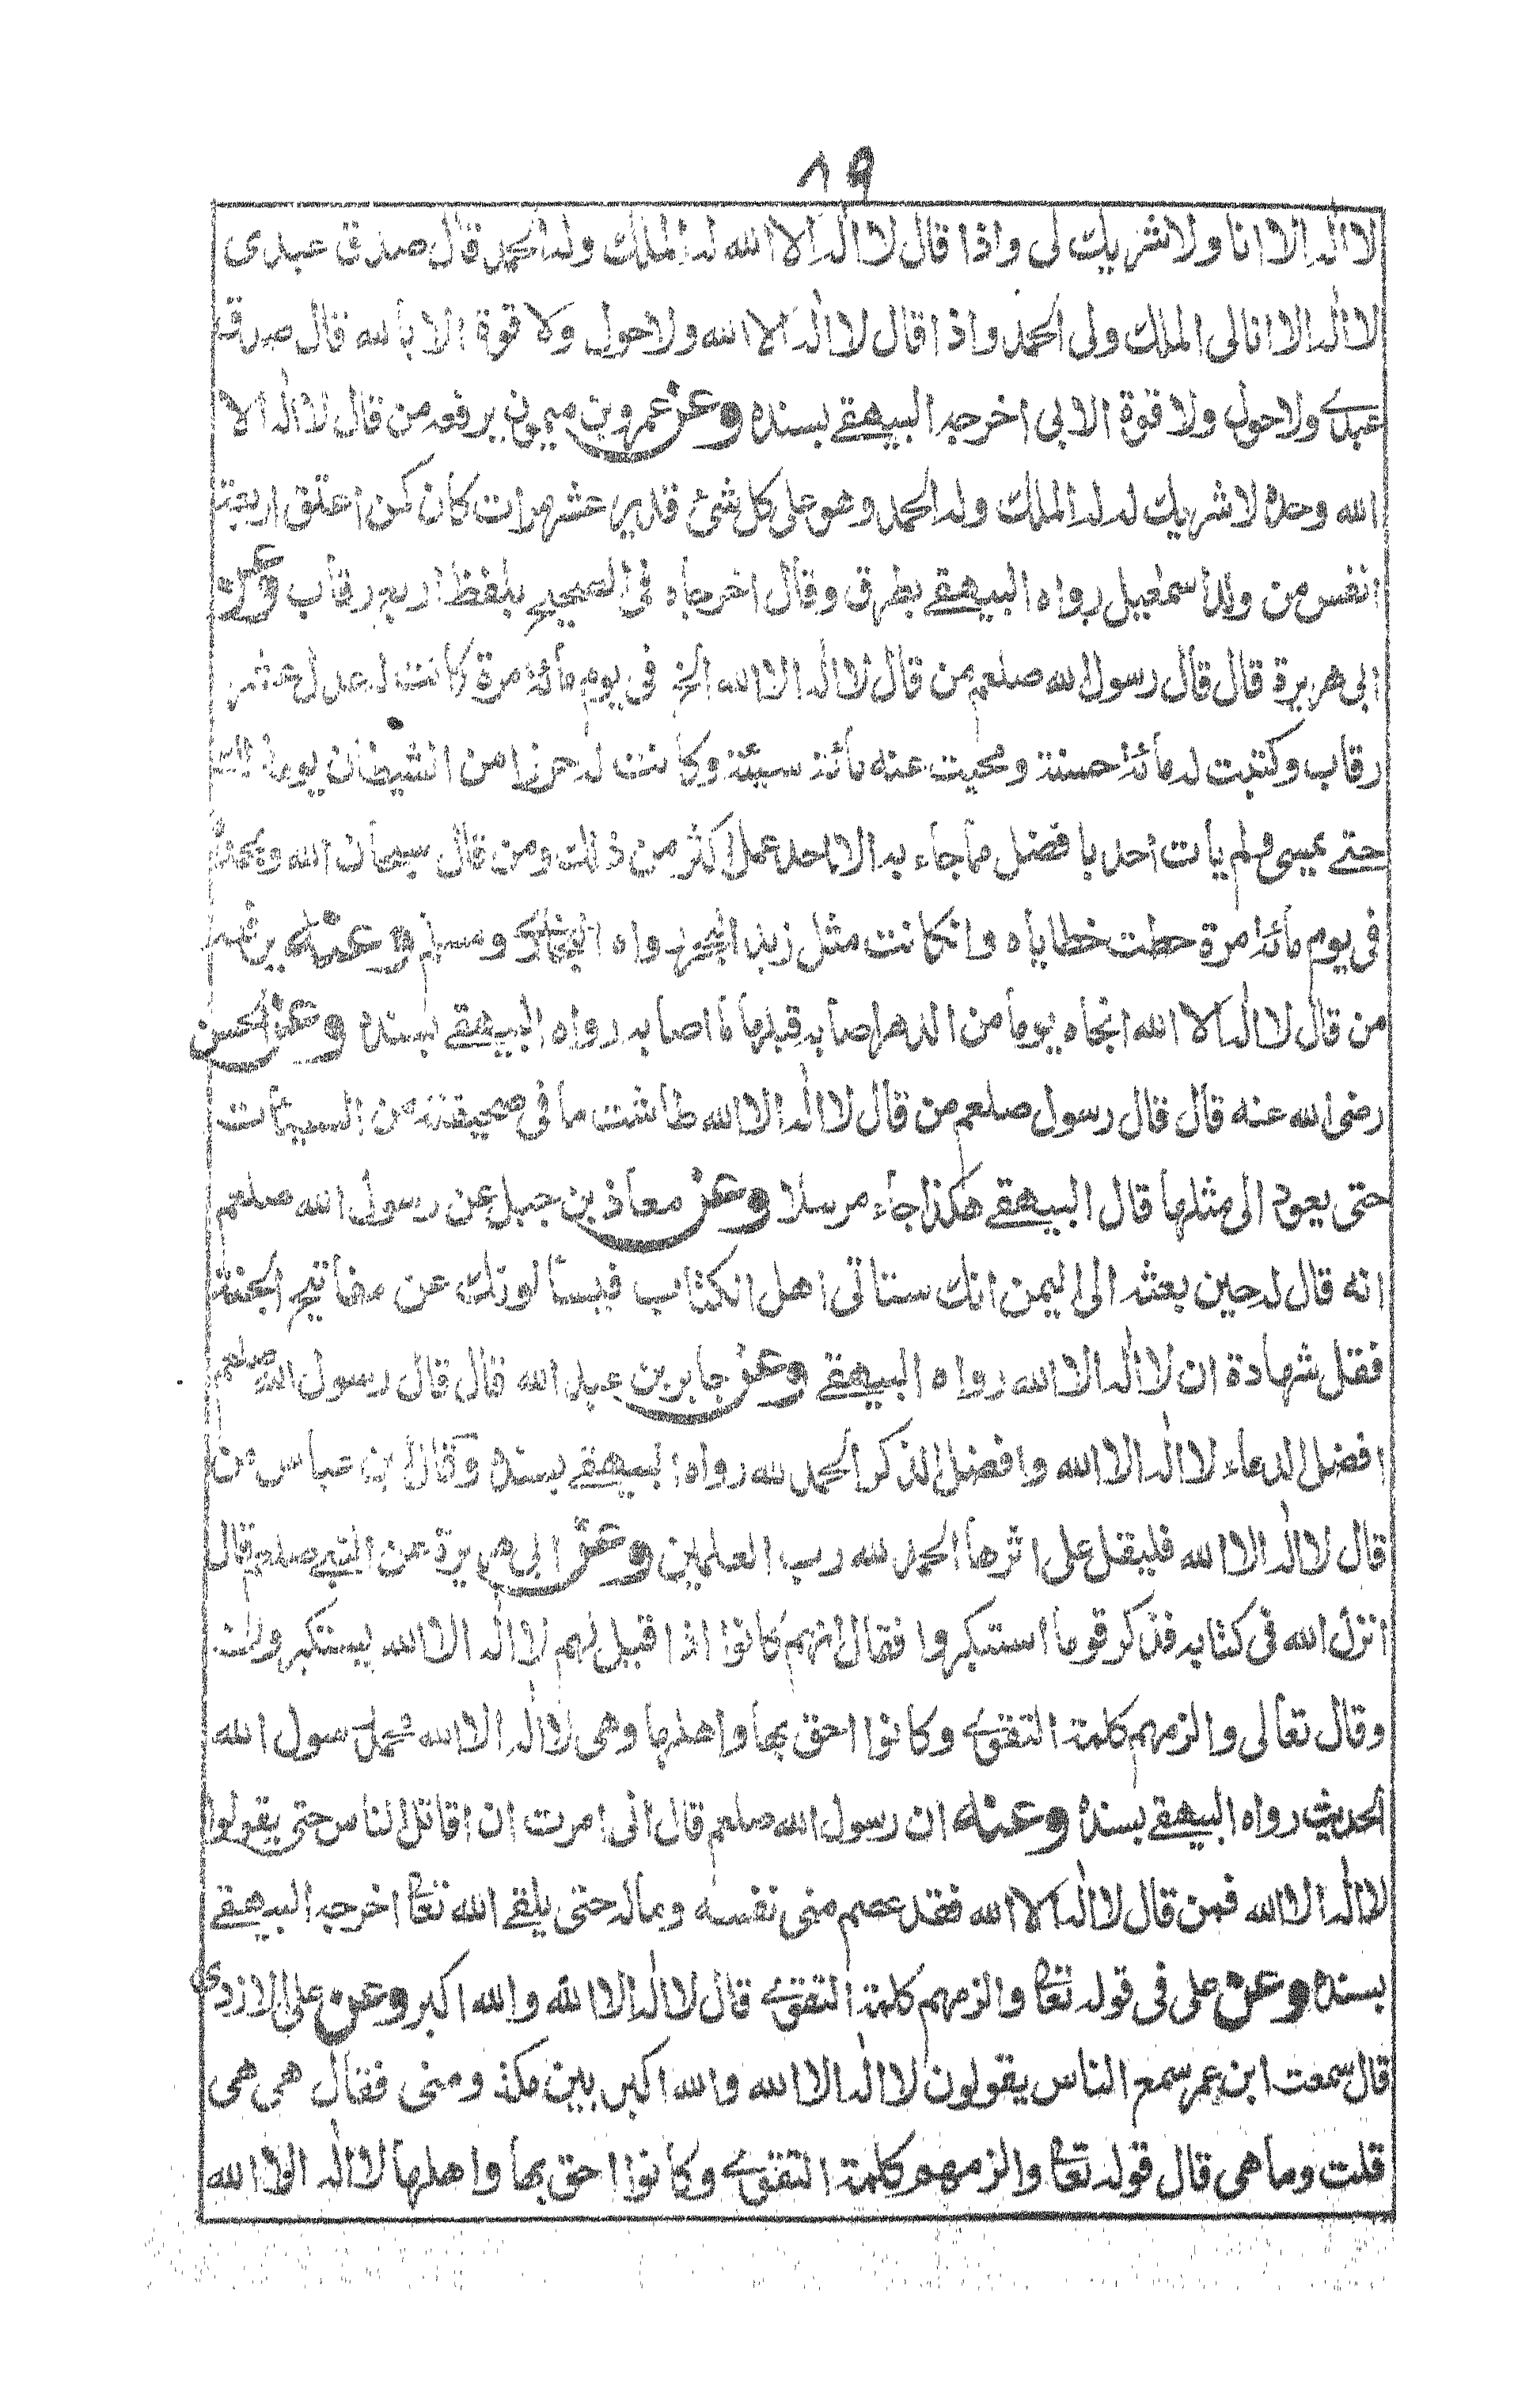 ١٩
لا اله الا انا ولا شريك لى واذا قال لا اله الا الله له الملك وله الحمد قال صدق عبدى
لا اله الا انا لى الملك ولى الحمد واذا قال لا اله الا الله ولا حول ولا قوة الا بالله قال صدق
عبدے ولا حول ولا قوة الا بى اخرجه البيهقے بسنده وعن عمرو بن ميمون يرفعه من قال لا اله الا
الله وحده لا شريك له له الملك وله الحمد وهو على كل شئ قدير عشر مرات كان كمن اعتق اربعة
انفس من ولد اسمعيل رواه البيهقے بطرق وقال اخرجاه فى الصحيح بلفظ اربع رقاب وعن
ابى هريرة قال قال رسول الله صلعم من قال لا اله الا الله الخ فى يوم مائة مرة كانت له عدل عشر
رقاب وكتبت له مائة حسنة ومحيت عنه مائة سيئة وكانت له حرزا من الشيطان يومه ذلك
حتے يمسى ولم يات احد بافضل مما جاء به الا احد عمل اكثر من ذلك ومن قال سبحان الله وبحمده
فى يوم مائة مرة حطت خطاياه وانكانت مثل زبد البحر رواه البخارے ومسلم وعنه يرفعه
من قال لا اله الا الله انجاه يوما من الدهر اصابه قبلها ما اصابه رواه البيهقے بسنده وعن الحسن
رضى الله عنه قال قال رسول صلعم من قال لا اله الا الله طاشت ما فى صحيفته من السيئات
حتى يعود الى مثلها قال البيهقے هكذا جاء مرسلا وعن معاذ بن جبل عن رسول الله صلعم
انه قال له حين بعثه الى اليمن انك ستاتى اهل الكتاب فيسألونك عن مفاتيح الجنة
فقل شهادة ان لا اله الا الله رواه البيهقے وعن جابر بن عبد الله قال قال رسول الله صلعم
افضل الدعاء لا اله الا الله وافضل الذكر الحمد لله رواه البيهقے بسنده وقال ابن عباس من
قال لا اله الا الله فليقل على اثرها الحمد لله رب العلمين وعن ابى هريرة عن النبے صلعم قال
انزل الله فى كتابه فذكر قوما استكبروا فقال انهم كانوا اذا قيل لهم لا اله الا الله يستكبرون
وقال تعالى والزمهم كلمة التقوے وكانوا احق بها واهلها وهى لا اله الا الله محمد رسول الله
الحديث رواه البيهقے بسنده وعنه ان رسول الله صلعم قال انى امرت ان اقاتل الناس حتى يقولوا
لا اله الا الله فمن قال لا اله الا الله فقد عصم منى نفسه وماله حتى يلقے الله تعا اخرجه البيهقے
بسنده وعن على فى قوله تعا والزمهم كلمة التقوے قال لا اله الا الله والله اكبر وعن على الازدى
قال سمعت ابن عمر سمع الناس يقولون لا اله الا الله والله اكبر بين مكة ومنى فقال هى هى
قلت وما هى قال قوله تعا والزمهم كلمة التقوے وكانوا احق بها واهلها لا اله الا الله